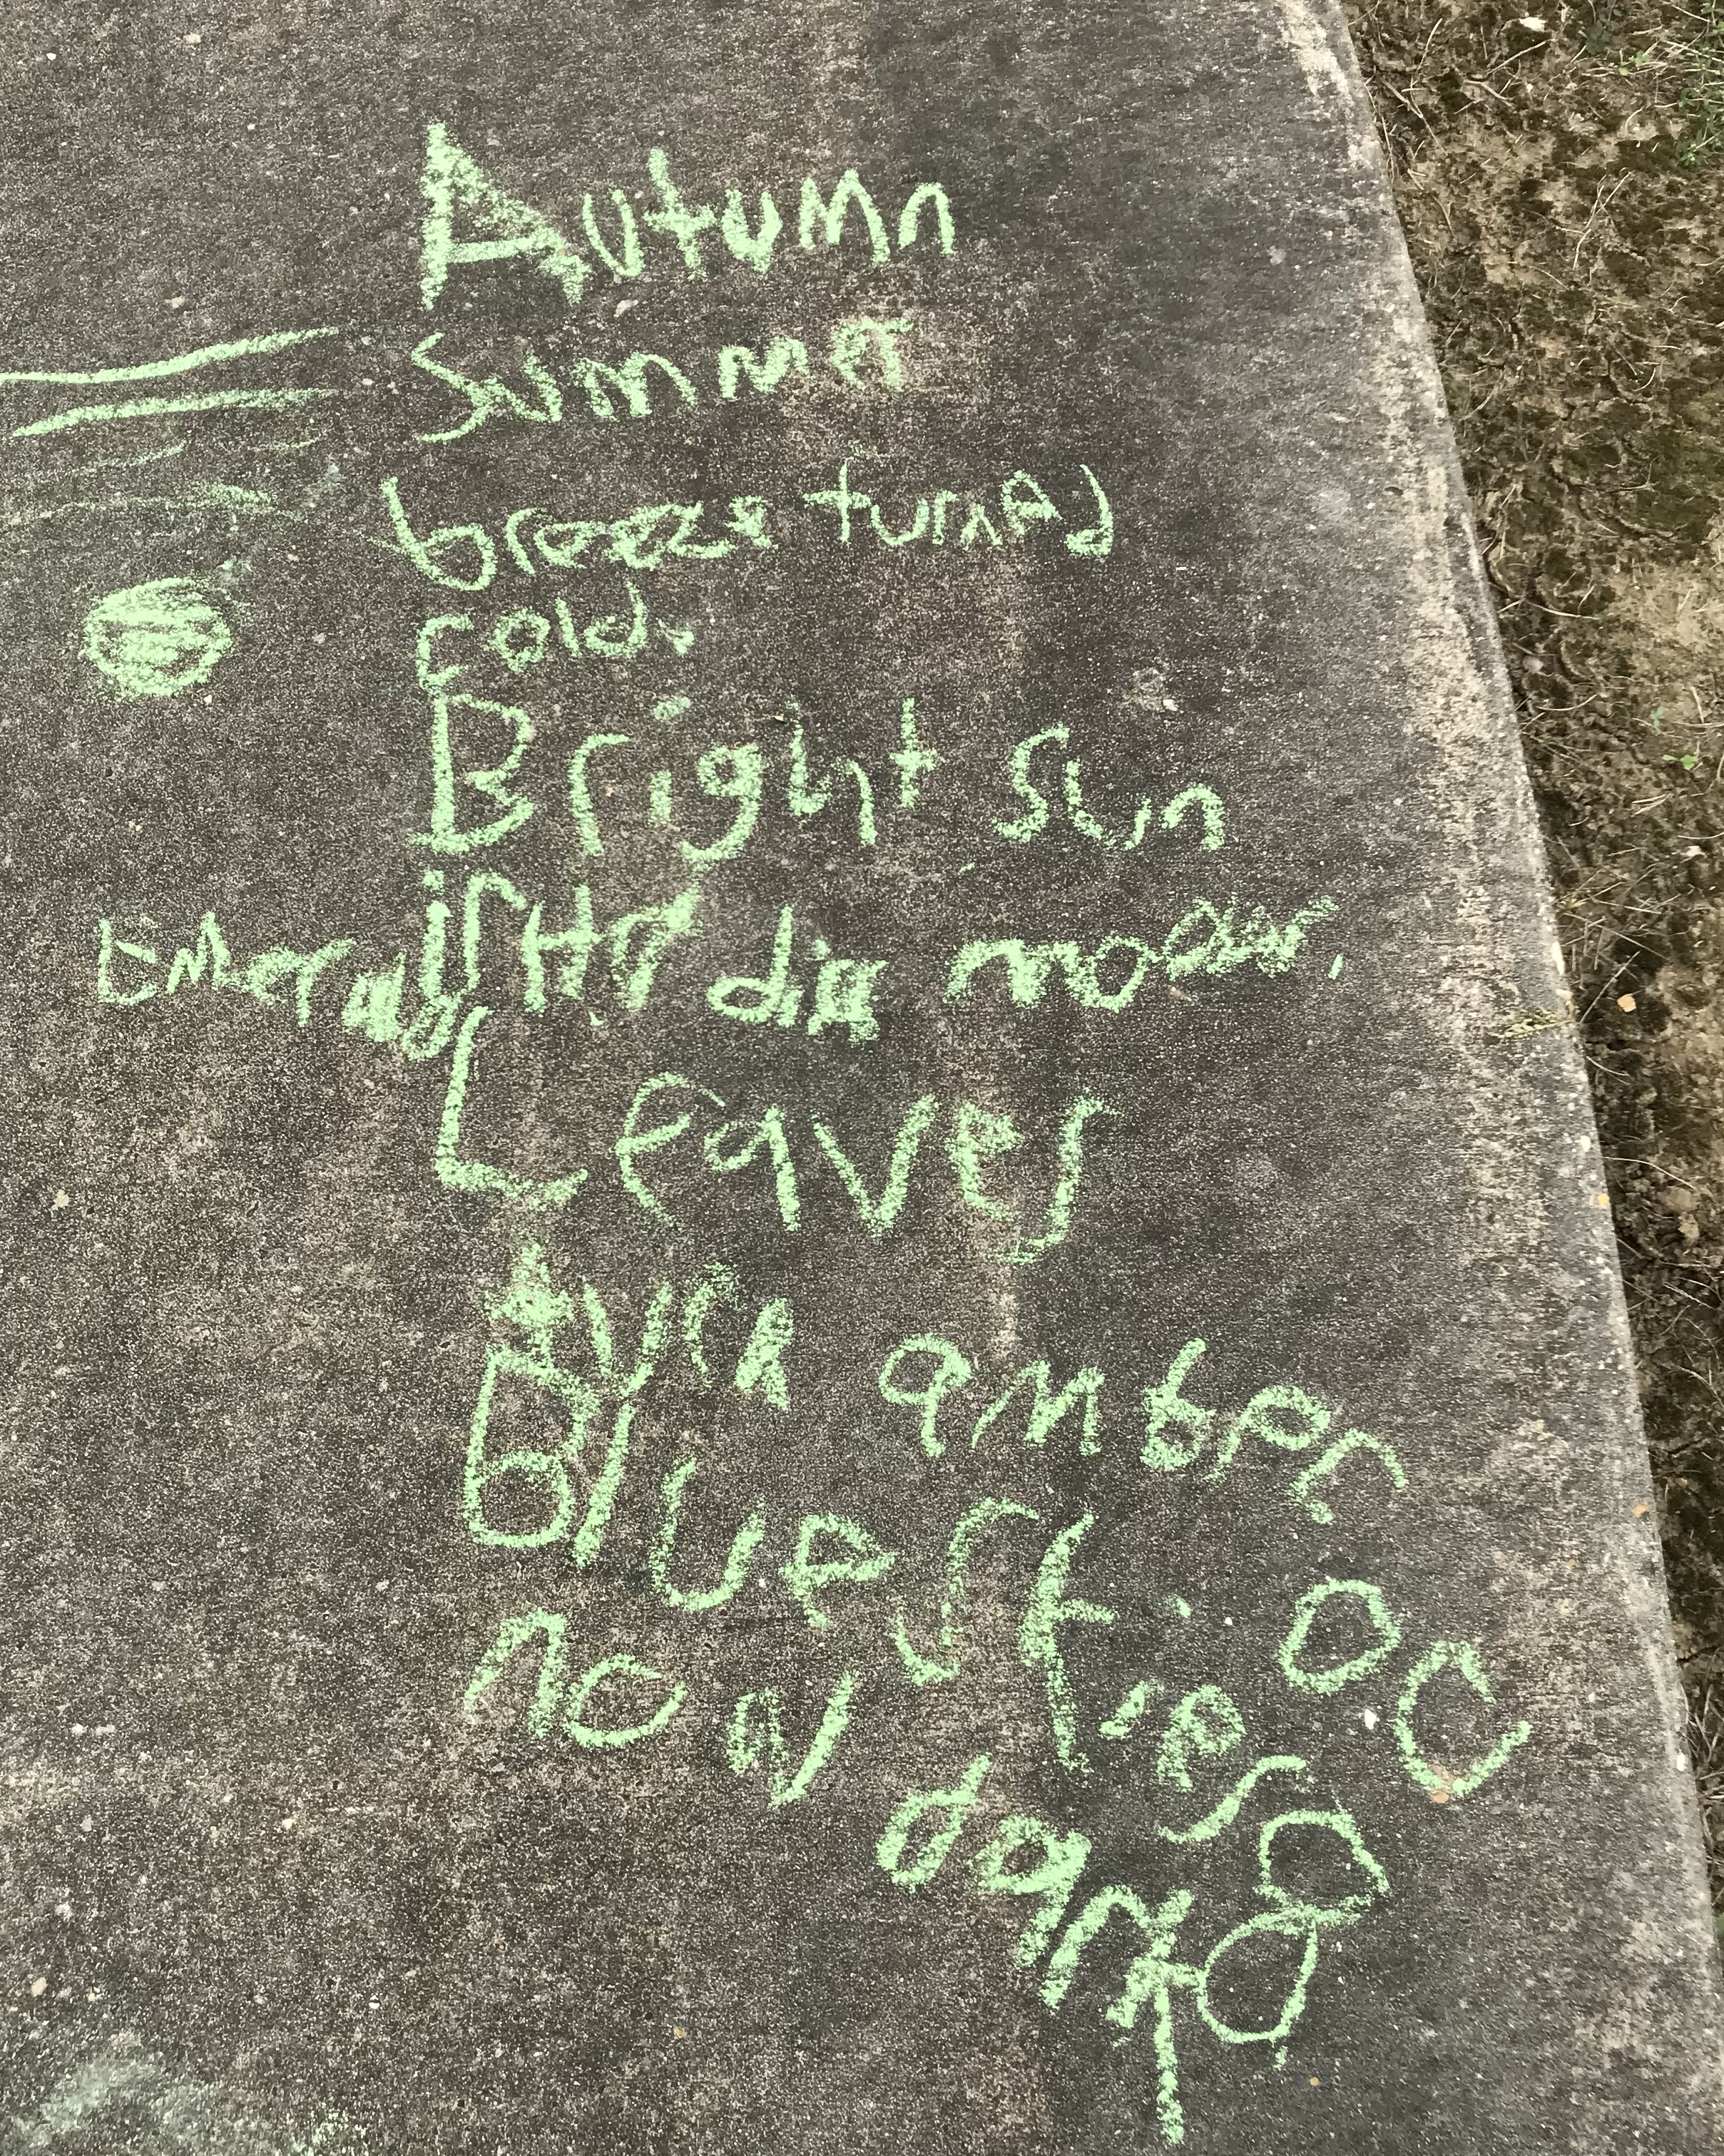 Autumn
Summer
breeze turned
cold.
Bright sun
Emerald
Leaves
turn amber
Blue skies
now dark